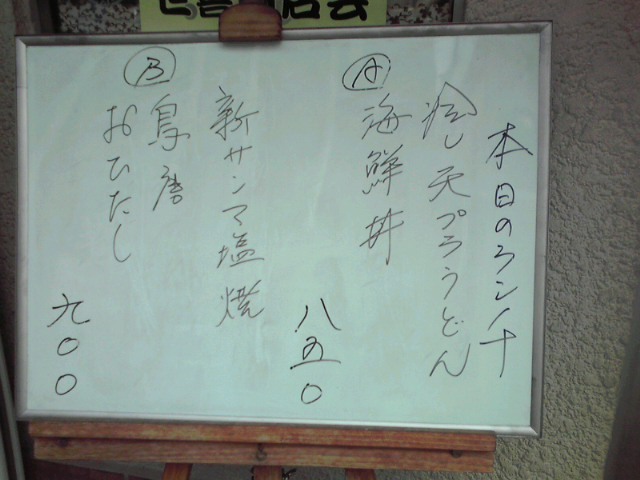 本日のランチ
冷し天プラうどん
Ⓐ 海鮮丼
八五〇
新サンマ塩焼
Ⓑ 鳥唐
おひたし
九〇〇